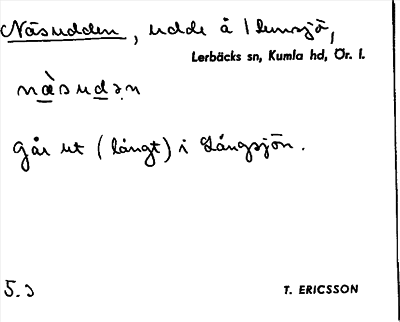 Näsudden, udde å 1 Lunsjö,
Lerbäcks sn, Kumla hd, Ör. l.
næ̀sudən
går ut (långt) i Långsjön.
5.
T. ERICSSON